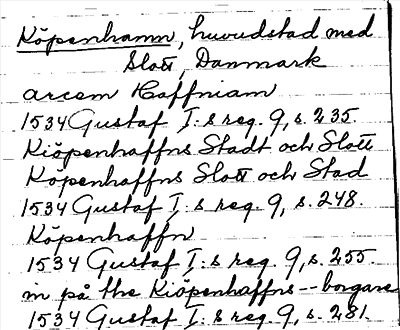 Köpenhamn, huvudstad med
Slott, Danmark
arcem Haffniam
1534 Gustaf I:s reg. 9, s. 235.
Kiöpenhaffns Stadt och Slott
Köpenhaffns Slott och Stad
1534 Gustaf I:s reg. 9, s. 248.
Köpenhaffn
1534 Gustaf I:s reg. 9, s. 255.
in på the Kiöpenhaffns--borgare
1534 Gustaf I:s reg. 9, s. 281.